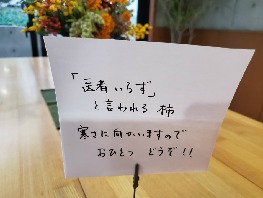 「医者いらず」
と言われる 柿
寒さに向かいますので
おひとつ どうぞ!!